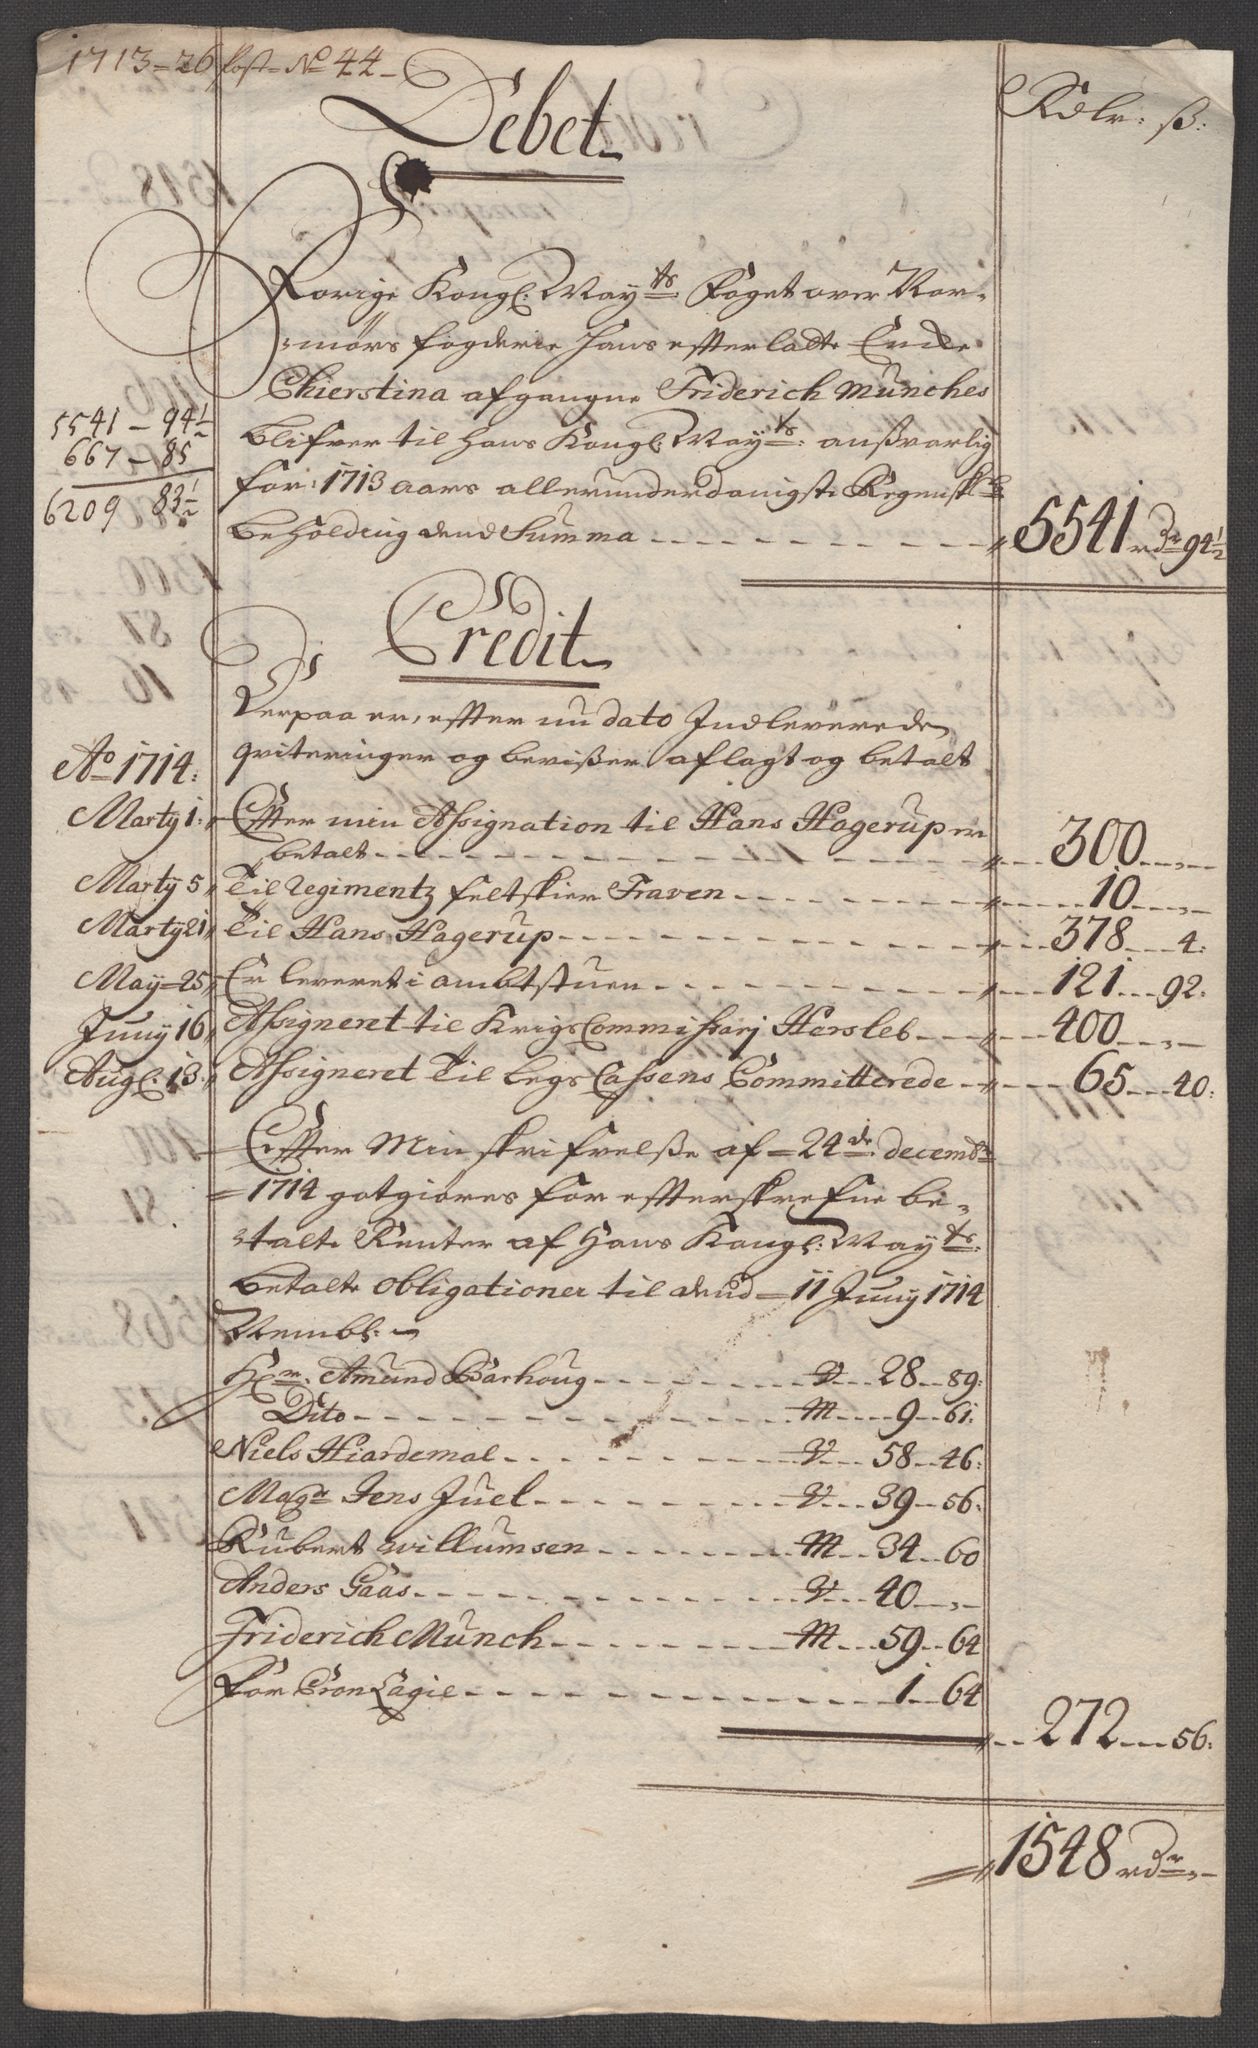 1713 = 26 post = No 44 –
Debet
Rdlr: ß:
Forige Kongl: Mayts Foget over Nor-
mørs fogderie hans effterladte Encke
Chierstina afgangne Friderich Munches
blifver til hans Kongl: Mayts: anßvarlig
for: 1713 aars allerunderdanigste Regenskbs
beholding dend Summa 5541 rdr 94 1/2
5541 – 94 1/2
667 – 85
6209 83 1/2
Credit
Derpaa er, effter nu dato Indleverede
qviteringer og bevißer aflagt og betalt
Ao 1714:
Marty 1: Effter min Assignation til Hans Hagerup er
betalt 300 „ –
Marty 5 Til Regimentz feltskier Fraven 10 „ –
Marty 21 Til Hans Hagerup 378 4:
May = 25 Er leveret i ambtstuen 121 92:
Juny 16 Assigneret til Krigs Commissarj Hersleb 400 „ –
Augl: 13 Assigneret Til Legs Cassens Committerede 65 40:
Effter Min skrifvelße af = 24de decembr
= 1714 gotgiøres for effterskrefne be-
talte Renter af Hans Kongl: Mayts:
betalte obligationer til dend = 11 Juny 1714
Nembl: –
Hr: Amund Barhoug V 28 89:
Dito M 9 61:
Niels Hiardemal V 58 46:
Magr Jens Juel V 39 56:
Rubert Willumsen M 34 60
Anders Gaas V 40 „ –
Friderich Munch M 59 64
For Cron Lagie 1 64
272 56:
1548 rdr „ –